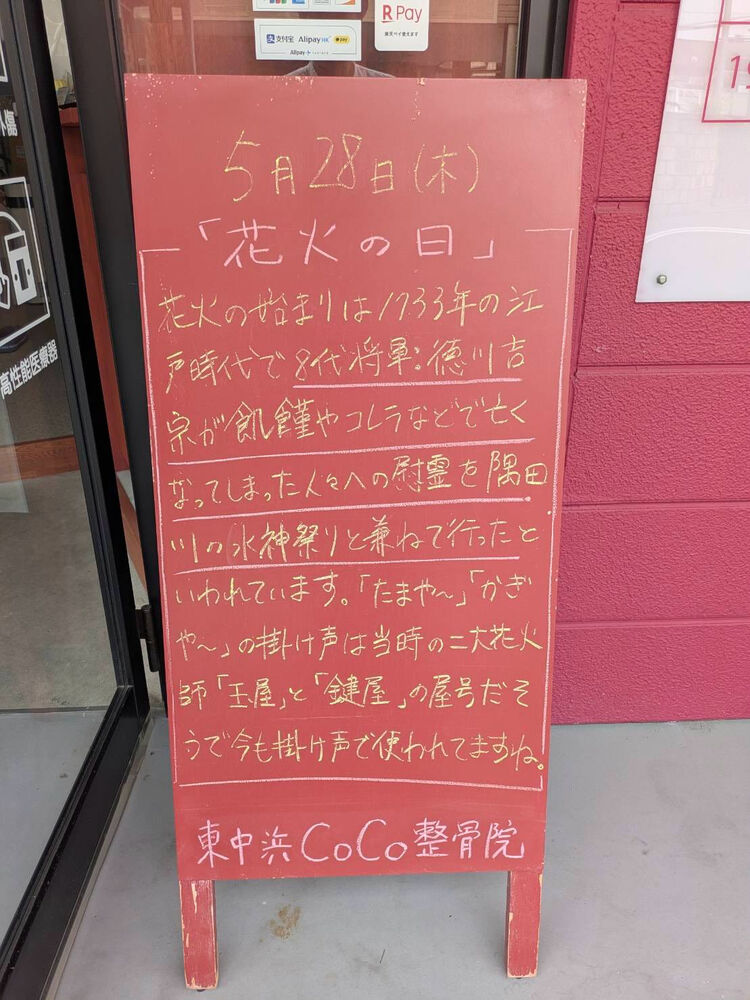 R Pay
楽天ペイ使えます
支付宝 AlipayHK pay
Alipay+
19
高性能医療器
5月28日(木)
「花火の日」
花火の始まりは1733年の江
戸時代で8代将軍:徳川吉
宗が飢饉やコレラなどで亡く
なってしまった人々への慰霊を隅田
川の水神祭りと兼ねて行ったと
いわれています。「たまや〜」「かぎ
や〜」の掛け声は当時の二大花火
師「玉屋」と「鍵屋」の屋号だそ
うで今も掛け声で使われてますね。
東中浜CoCo整骨院